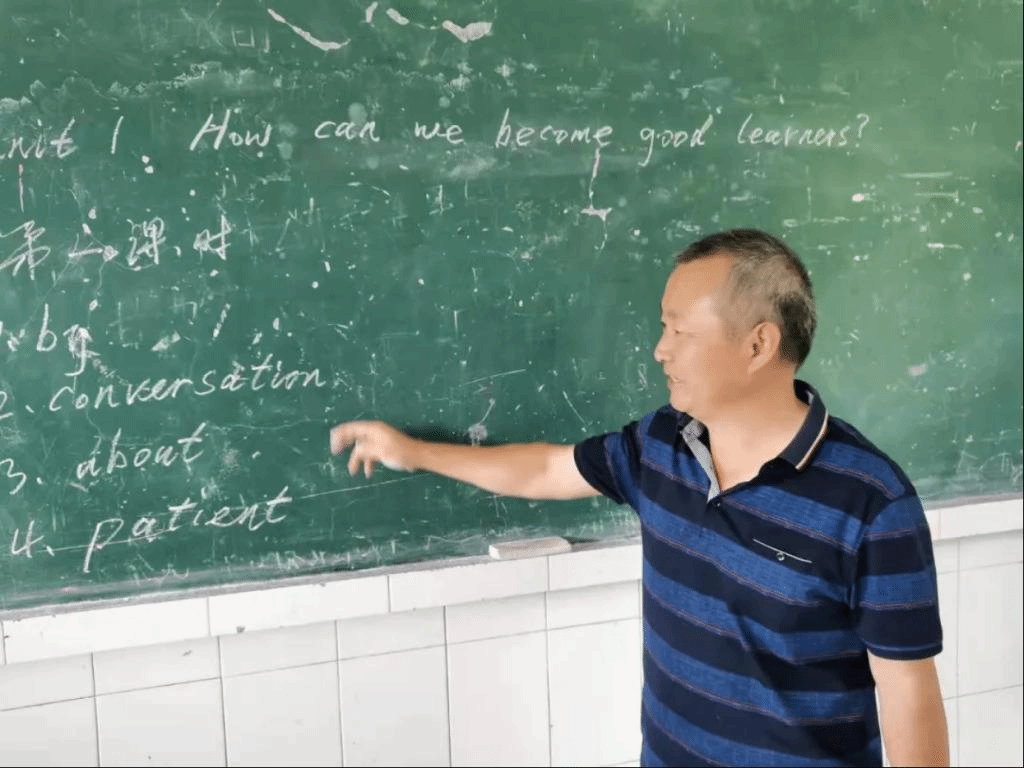 nit 1. How can we become good learners?
第一课时
1. by
2. conversation
3. about
4. patient